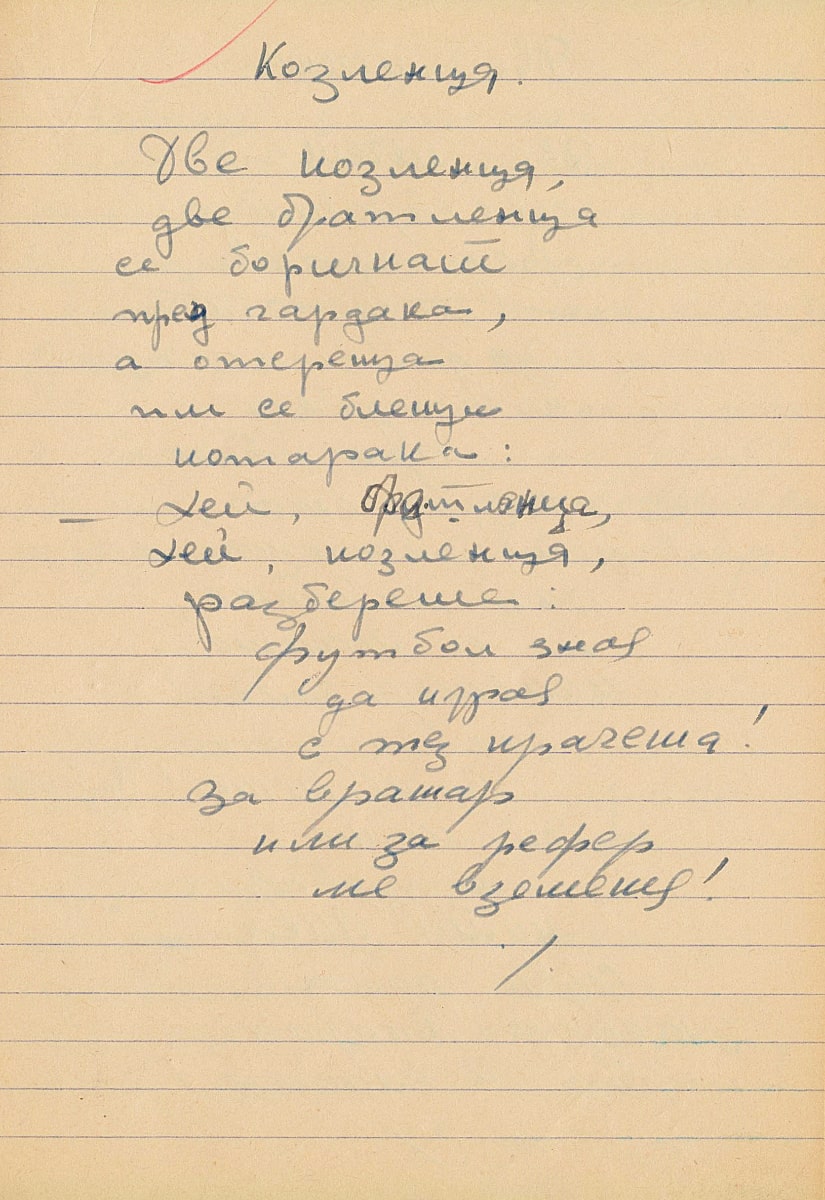 Козленца.
Две козленца,
две братленца
се боричкат
пред чардака,
а отсреща
им се блещи
котарака:
– Хей, братленца,
хей, козленца,
разберете:
футбол зная
да играя
с тез крачета!
За вратар
или за рефер
ме вземете!